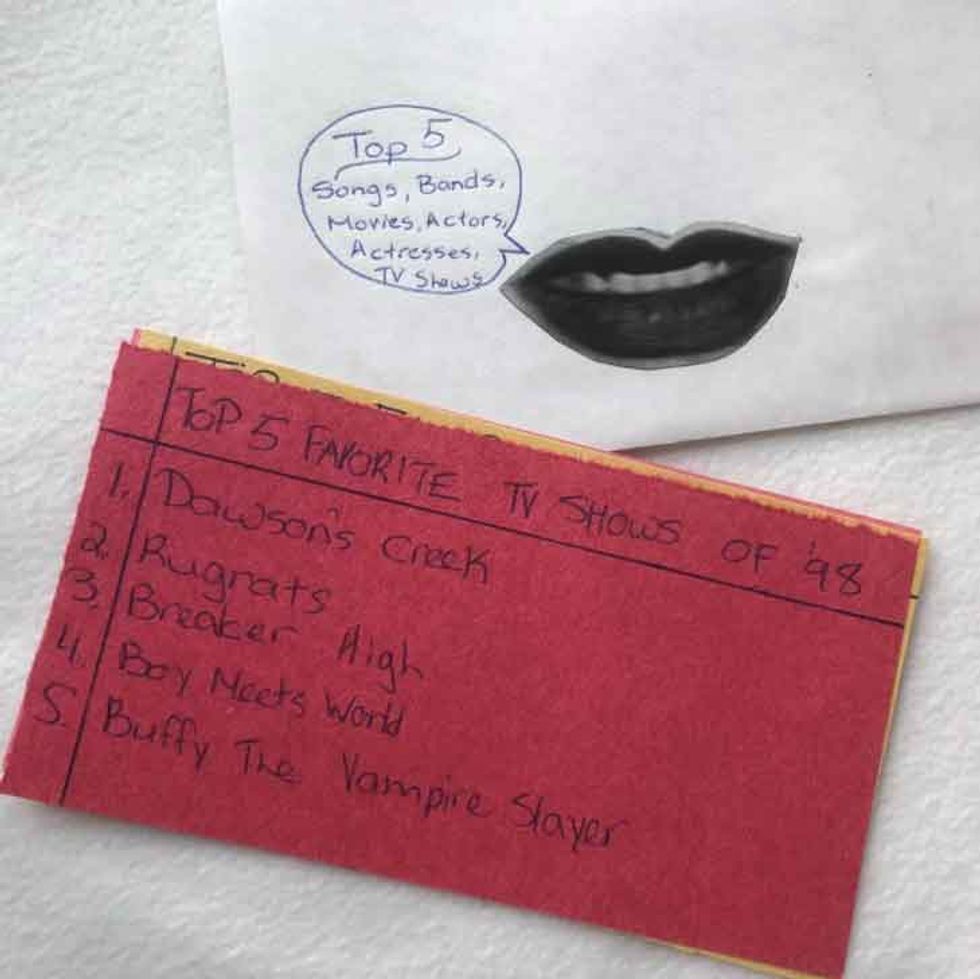 Top 5
Songs, Bands,
Movies, Actors,
Actresses,
TV Shows
TOP 5 FAVORITE TV SHOWS OF '98
1. Dawson's Creek
2. Rugrats
3. Breaker High
4. Boy Meets World
5. Buffy The Vampire Slayer